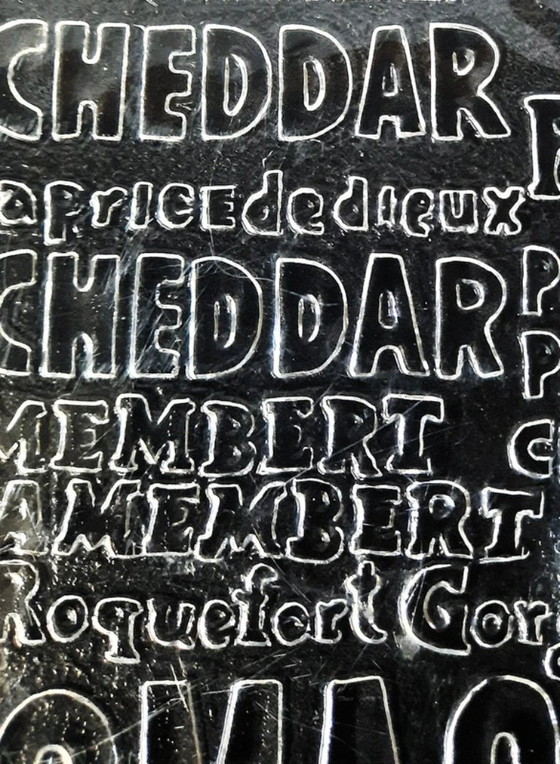 CHEDDAR
apricEdedieux
CHEDDAR
MEMBERT
AMEMBERT
Roquefort Gor